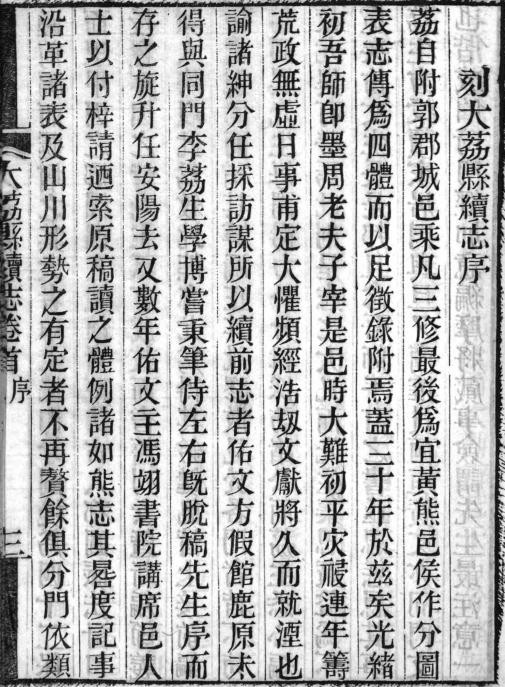 刻大荔縣續志序
荔自附郭郡城邑乘凡三修最後爲宜黃熊邑侯作分圖
表志傳爲四體而以足徵錄附焉蓋三十年於兹矣光緒
初吾師卽墨周老夫子宰是邑時大難初平灾祲連年籌
荒政無虛日事甫定大懼頻經浩刼文獻將久而就湮也
諭諸紳分任採訪謀所以續前志者佑文方假館鹿原未
得與同門李荔生學博嘗秉筆侍左右旣脫稿先生序而
存之旋升任安陽去又數年佑文主馮翊書院講席邑人
士以付梓請迺索原稿讀之體例諸如熊志其晷度記事
沿革諸表及山川形勢之有定者不再贅餘俱分門依類
大荔縣續志卷首 序 三